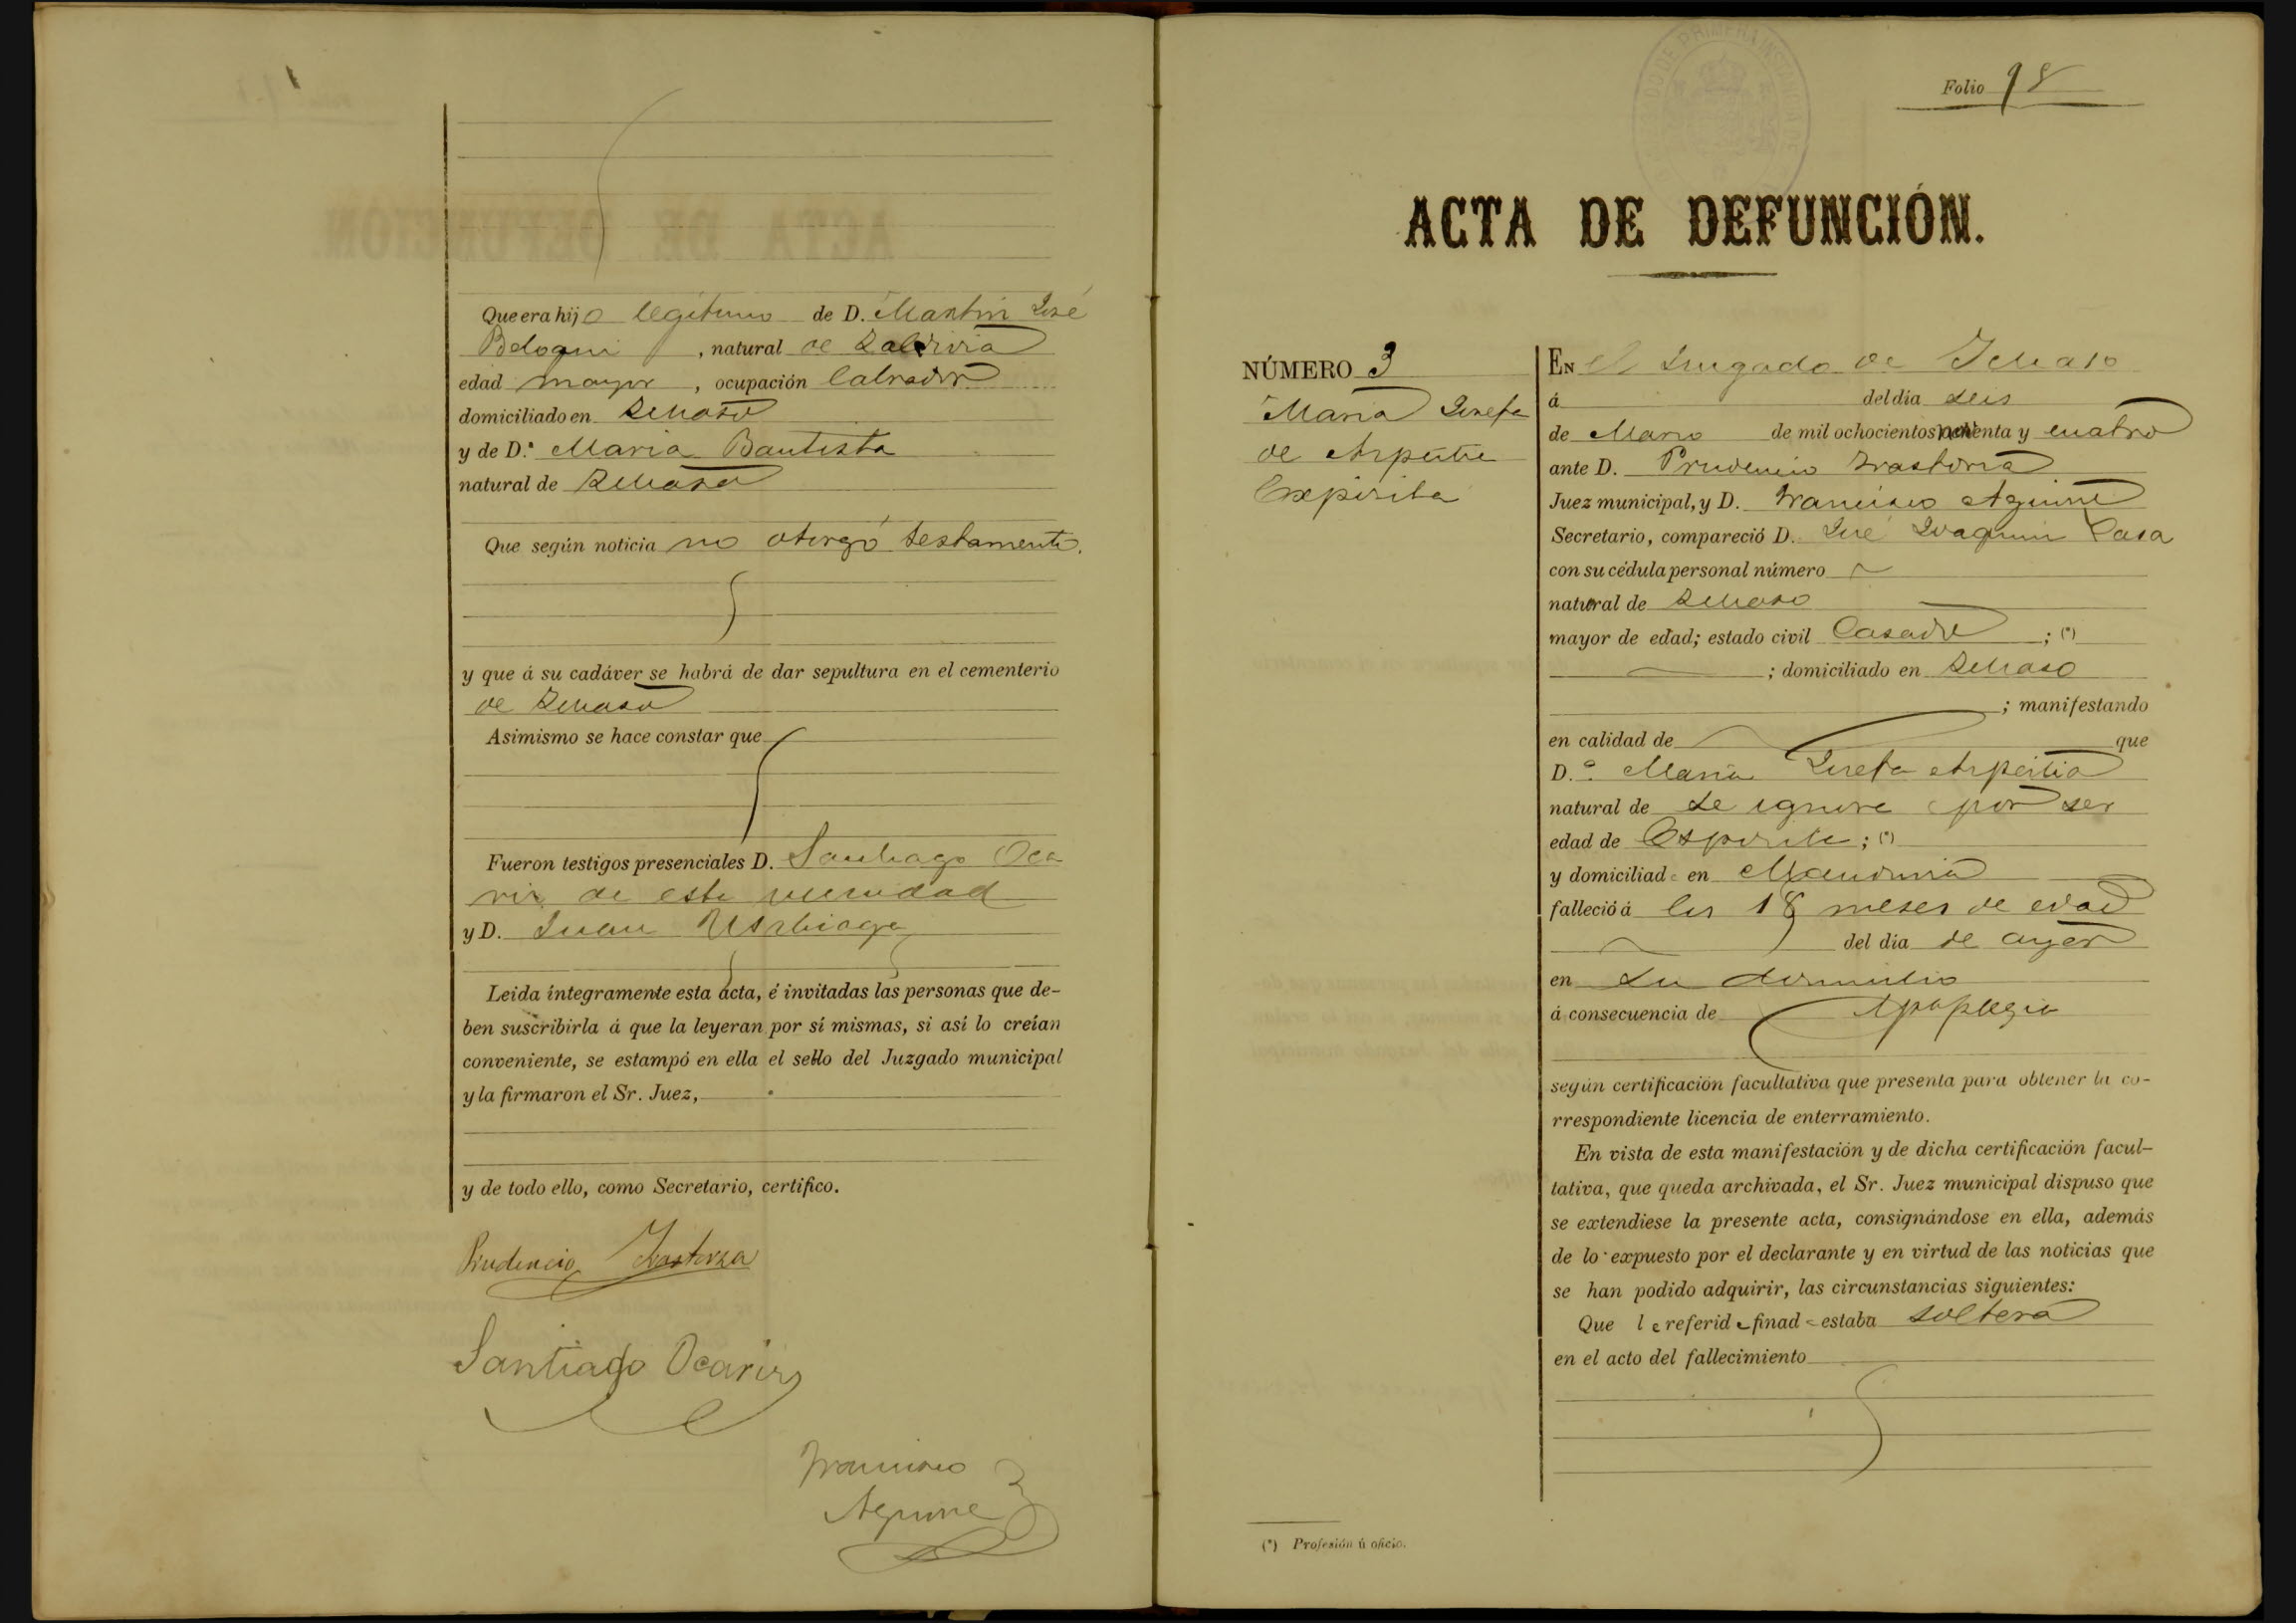 Que era hijo legítimo de D. Martin José
Beloqui, natural de Zaldivia
edad mayor, ocupación labrador
domiciliado en
y de D.ª Maria Bautista
natural de
Que según noticia no otorgó testamento.
y que á su cadáver se habrá de dar sepultura en el cementerio
de
Asimismo se hace constar que
Fueron testigos presenciales D. Santiago Oca
riz de esta vecindad
y D. Juan
Leida íntegramente esta acta, é invitadas las personas que de-
ben suscribirla á que la leyeran por sí mismas, si así lo creían
conveniente, se estampó en ella el sello del Juzgado municipal
y la firmaron el Sr. Juez,
y de todo ello, como Secretario, certifico.
Prudencio Irastorza
Santiago Ocariz
Francisco
Aguirre
Folio 98
ACTA DE DEFUNCIÓN.
NÚMERO 3
Maria Josefa
de Azpeitia
Expósita
EN el Juzgado de
á del día seis
de Marzo de mil ochocientos noventa y cuatro
ante D. Prudencio Irastorza
Juez municipal, y D. Francisco Aguirre
Secretario, compareció D. José Joaquin Lasa
con su cédula personal número
natural de
mayor de edad; estado civil Casado; (*)
; domiciliado en
; manifestando
en calidad de que
D.ª Maria Josefa Azpeitia
natural de se ignora por ser
edad de Espósita; (*)
y domiciliada en
falleció á los 18 meses de edad
del día de ayer
en su domicilio
á consecuencia de Apoplegia
según certificación facultativa que presenta para obtener la co-
rrespondiente licencia de enterramiento.
En vista de esta manifestación y de dicha certificación facul-
tativa, que queda archivada, el Sr. Juez municipal dispuso que
se extendiese la presente acta, consignándose en ella, además
de lo expuesto por el declarante y en virtud de las noticias que
se han podido adquirir, las circunstancias siguientes:
Que la referida finada estaba soltera
en el acto del fallecimiento
(*) Profesión ú oficio.